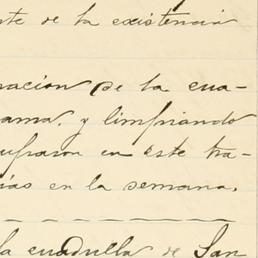 te de la existencia
ración de la cua-
ama, y limpiando
ufraron en este tra-
ías en la semana.
la cuadrilla de San